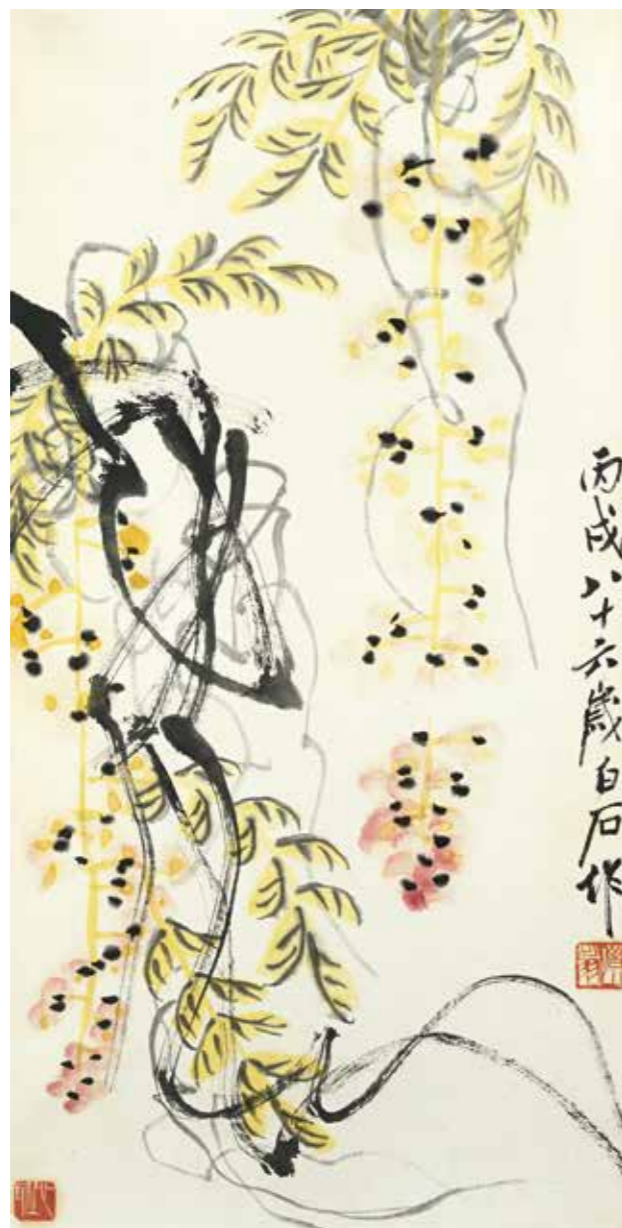 丙戌八十六歲白石作